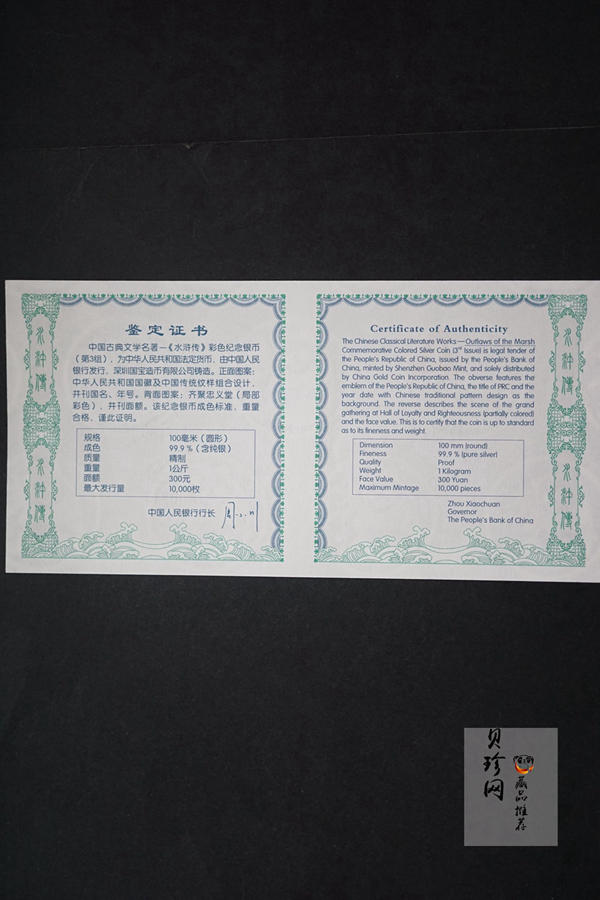 鉴定证书
中国古典文学名著—《水浒传》彩色纪念银币
（第3组），为中华人民共和国法定货币，由中国人民
银行发行，深圳国宝造币有限公司铸造。正面图案：
中华人民共和国国徽及中国传统纹样组合设计，
并刊国名、年号。背面图案：齐聚忠义堂（局部
彩色），并刊面额。该纪念银币成色标准，重量
合格，谨此证明。
规格 100毫米（圆形）
成色 99.9％（含纯银）
质量 精制
重量 1公斤
面额 300元
最大发行量 10,000枚
中国人民银行行长
水浒传
水浒传
Certificate of Authenticity
The Chinese Classical Literature Works—Outlaws of the Marsh
Commemorative Colored Silver Coin (3rd Issue) is legal tender of
the People's Republic of China, issued by the People's Bank of
China, minted by Shenzhen Guobao Mint, and solely distributed
by China Gold Coin Incorporation. The obverse features the
emblem of the People's Republic of China, the title of PRC and the
year date with Chinese traditional pattern design as the
background. The reverse describes the scene of the grand
gathering at Hall of Loyalty and Righteousness (partially colored)
and the face value. This is to certify that the coin is up to standard
as to its fineness and weight.
Dimension 100 mm (round)
Fineness 99.9 % (pure silver)
Quality Proof
Weight 1 Kilogram
Face Value 300 Yuan
Maximum Mintage 10,000 pieces
Zhou Xiaochuan
Governor
The People's Bank of China
水浒传
水浒传
贝珍网
藏品推荐